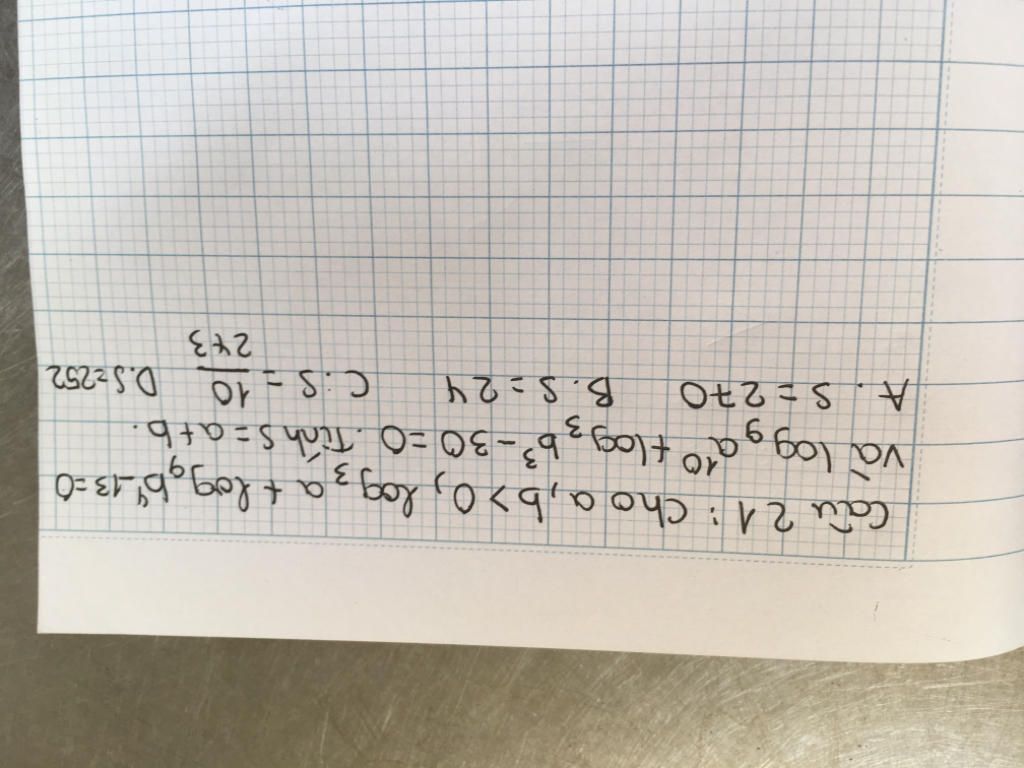 Câu 21: Cho a, b > 0, log₃a + log₉b⁴ - 13 = 0
và log₉a¹⁰ + log₃b³ - 30 = 0. Tính S = a + b.
A. S = 270 B. S = 24 C. S = 10/243 D. S = 252